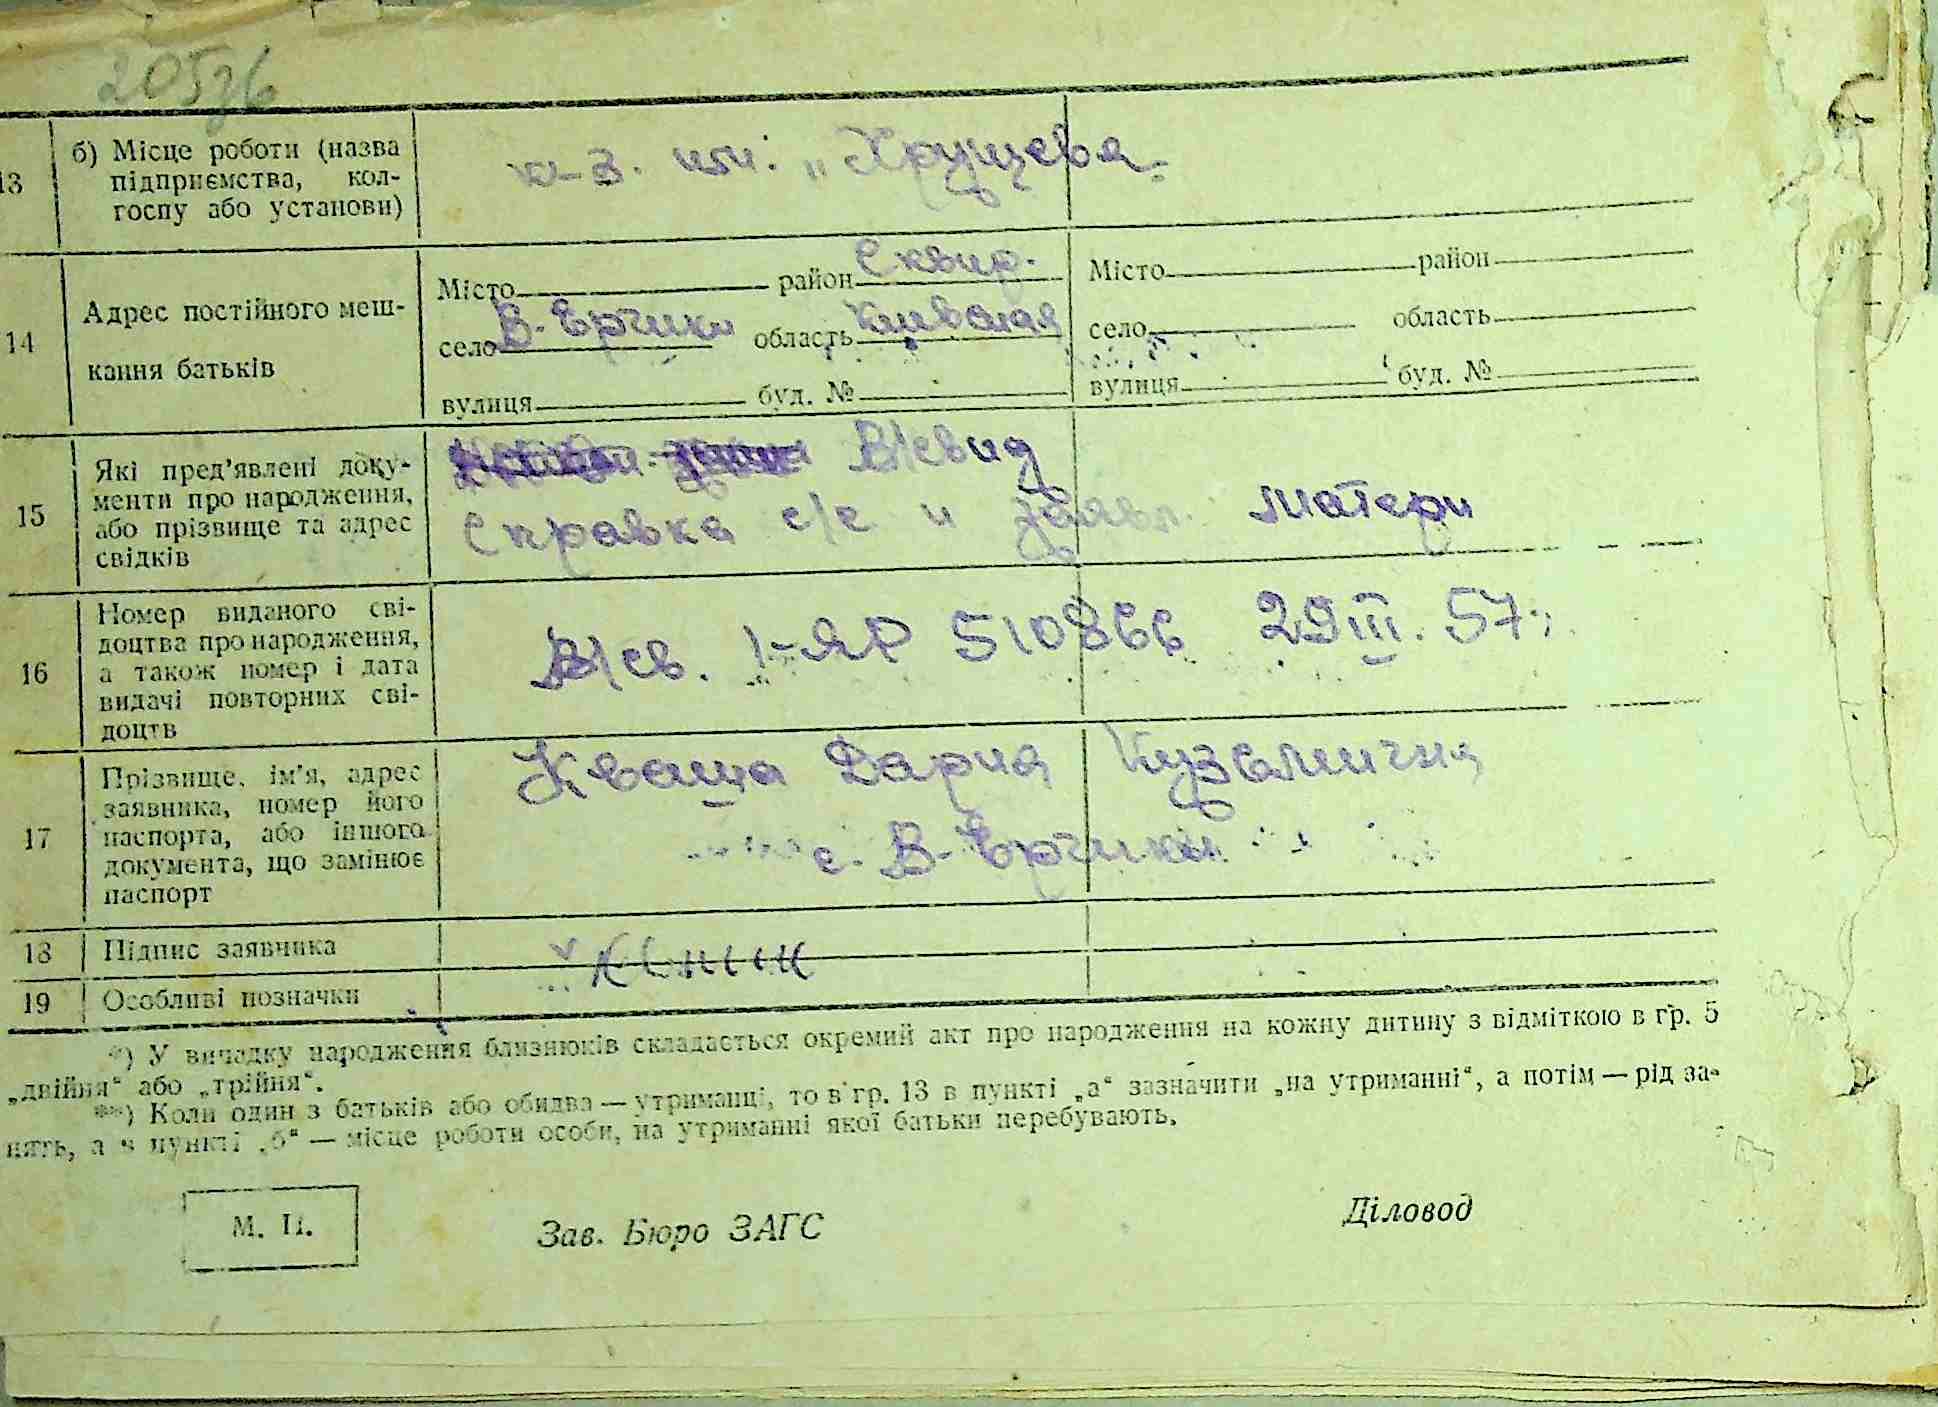 205зв
13
б) Місце роботи (назва
підприємства, кол-
госпу або установи)
к-з. им: „Хрущева"
14
Адрес постійного меш-
кання батьків
Місто район Сквир.
село В-Ерчики область Киевская
вулиця буд. №
Місто район
село область
вулиця буд. №
15
Які пред'явлені доку-
менти про народження,
або прізвище та адрес
свідків
В/свид
Справка с/с и заявл. матери
16
Номер виданого сві-
доцтва про народження,
а також номер і дата
видачі повторних сві-
доцтв
В/св. I-ЯР 510866 29 III. 57г.
17
Прізвище, ім'я, адрес
заявника, номер його
паспорта, або іншого
документа, що замінює
паспорт
Кваша Дария Кузьминична
с. В-Ерчики
18
Підпис заявника
19
Особливі позначки
*) У випадку народження близнюків складається окремий акт про народження на кожну дитину з відміткою в гр. 5
„двійня" або „трійня".
**) Коли один з батьків або обидва — утриманці, то в гр. 13 в пункті „а" зазначити „на утриманні", а потім — рід за-
нять, а в пункті „б" — місце роботи особи, на утриманні якої батьки перебувають.
М. П.
Зав. Бюро ЗАГС
Діловод